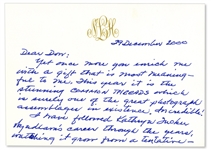 29 December 2000
Dear Don,
Yet once more you enrich me
with a gift that is most meaning-
ful to me. This year it is the
stunning COMMON THREADS which
is surely one of the great photograph
assemblages in existence. Incredible!
I have followed Kathryn Tucker
Wyndham's career through the years,
watching it grow from a tentative—